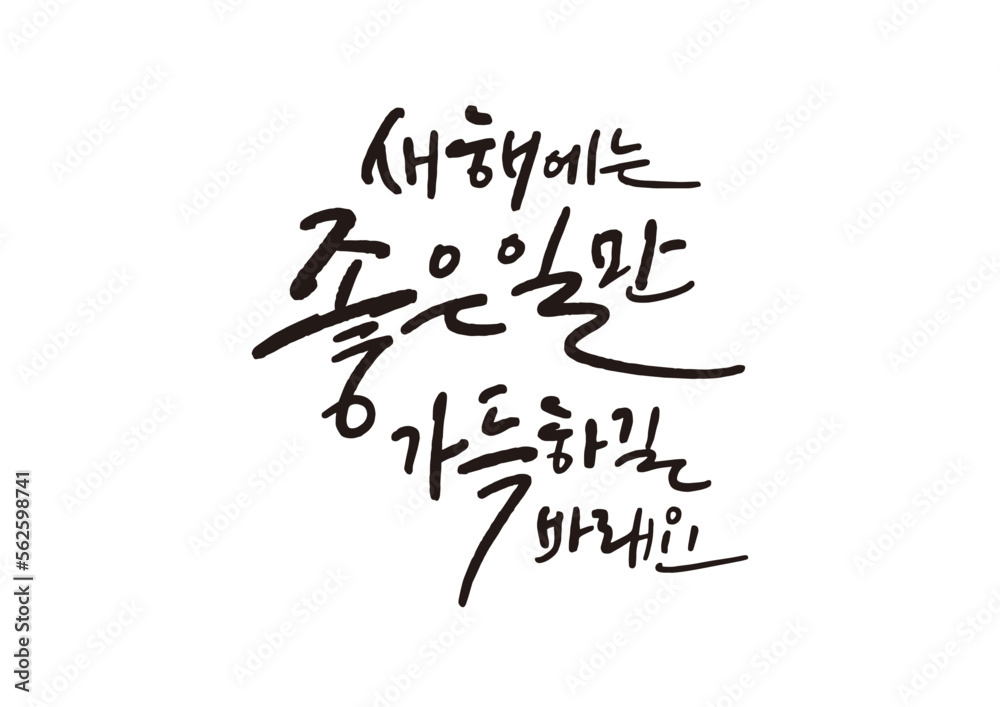 새해에는
좋은 일만
가득하길
바래요
Adobe Stock | #562598741